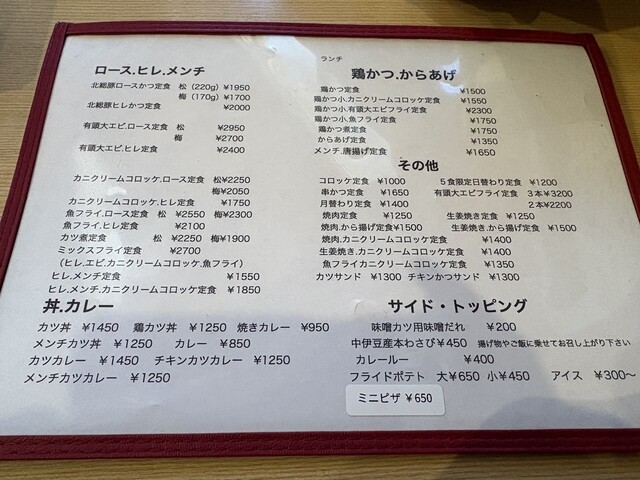 ロース.ヒレ.メンチ
北総豚ロースかつ定食 松（220g）¥1950
梅（170g）¥1700
北総豚ヒレかつ定食 ¥2000
有頭大エビ.ロース定食 松 ¥2950
梅 ¥2700
有頭大エビ.ヒレ定食 ¥2400
カニクリームコロッケ.ロース定食 松¥2250
梅¥2050
カニクリームコロッケ.ヒレ定食 ¥1750
魚フライ.ロース定食 松 ¥2550 梅¥2300
魚フライ.ヒレ定食 ¥2100
カツ煮定食 松 ¥2250 梅¥1900
ミックスフライ定食 ¥2700
（ヒレ.エビ.カニクリームコロッケ.魚フライ）
ヒレ.メンチ定食 ¥1550
ヒレ.メンチ.カニクリームコロッケ定食 ¥1850
丼.カレー
カツ丼 ¥1450 鶏カツ丼 ¥1250 焼きカレー ¥950
メンチカツ丼 ¥1250 カレー ¥850
カツカレー ¥1450 チキンカツカレー ¥1250
メンチカツカレー ¥1250
ランチ
鶏かつ.からあげ
鶏かつ定食 ¥1500
鶏かつ小.カニクリームコロッケ定食 ¥1550
鶏かつ小.有頭大エビフライ定食 ¥2300
鶏かつ小.魚フライ定食 ¥1750
鶏かつ煮定食 ¥1750
からあげ定食 ¥1350
メンチ.唐揚げ定食 ¥1650
その他
コロッケ定食 ¥1000 5食限定日替わり定食 ¥1200
串かつ定食 ¥1650 有頭大エビフライ定食 3本¥3200
月替わり定食 ¥1400 2本¥2200
焼肉定食 ¥1250 生姜焼き定食 ¥1250
焼肉.から揚げ定食¥1500 生姜焼き.から揚げ定食 ¥1500
焼肉.カニクリームコロッケ定食 ¥1400
生姜焼き.カニクリームコロッケ定食 ¥1400
魚フライカニクリームコロッケ定食 ¥1350
カツサンド ¥1300 チキンかつサンド ¥1300
サイド・トッピング
味噌カツ用味噌だれ ¥200
中伊豆産本わさび¥450 揚げ物やご飯に乗せてお召し上がり下さい
カレールー ¥400
フライドポテト 大¥650 小¥450 アイス ¥300〜
ミニピザ ¥650